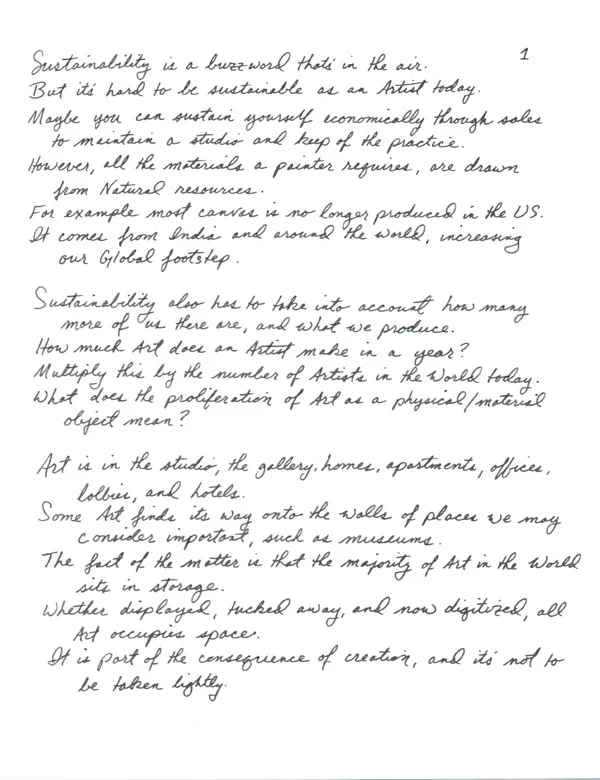 1
Sustainability is a buzzword that's in the air.
But it's hard to be sustainable as an Artist today.
Maybe you can sustain yourself economically through sales
to maintain a studio and keep of the practice.
However, all the materials a painter requires, are drawn
from Natural resources.
For example most canvas is no longer produced in the US.
It comes from India and around the world, increasing
our Global footstep.
Sustainability also has to take into account how many
more of us there are, and what we produce.
How much Art does an Artist make in a year?
Multiply this by the number of Artists in the World today.
What does the proliferation of Art as a physical/material
object mean?
Art is in the studio, the gallery, homes, apartments, offices,
lolbies, and hotels.
Some Art finds its way onto the walls of places we may
consider important, such as museums.
The fact of the matter is that the majority of Art in the World
sits in storage.
Whether displayed, tucked away, and now digitized, all
Art occupies space.
It is part of the consequence of creation, and it's not to
be taken lightly.